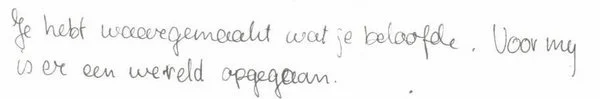 Je hebt waargemaakt wat je beloofde. Voor mij
is er een wereld opgegaan.